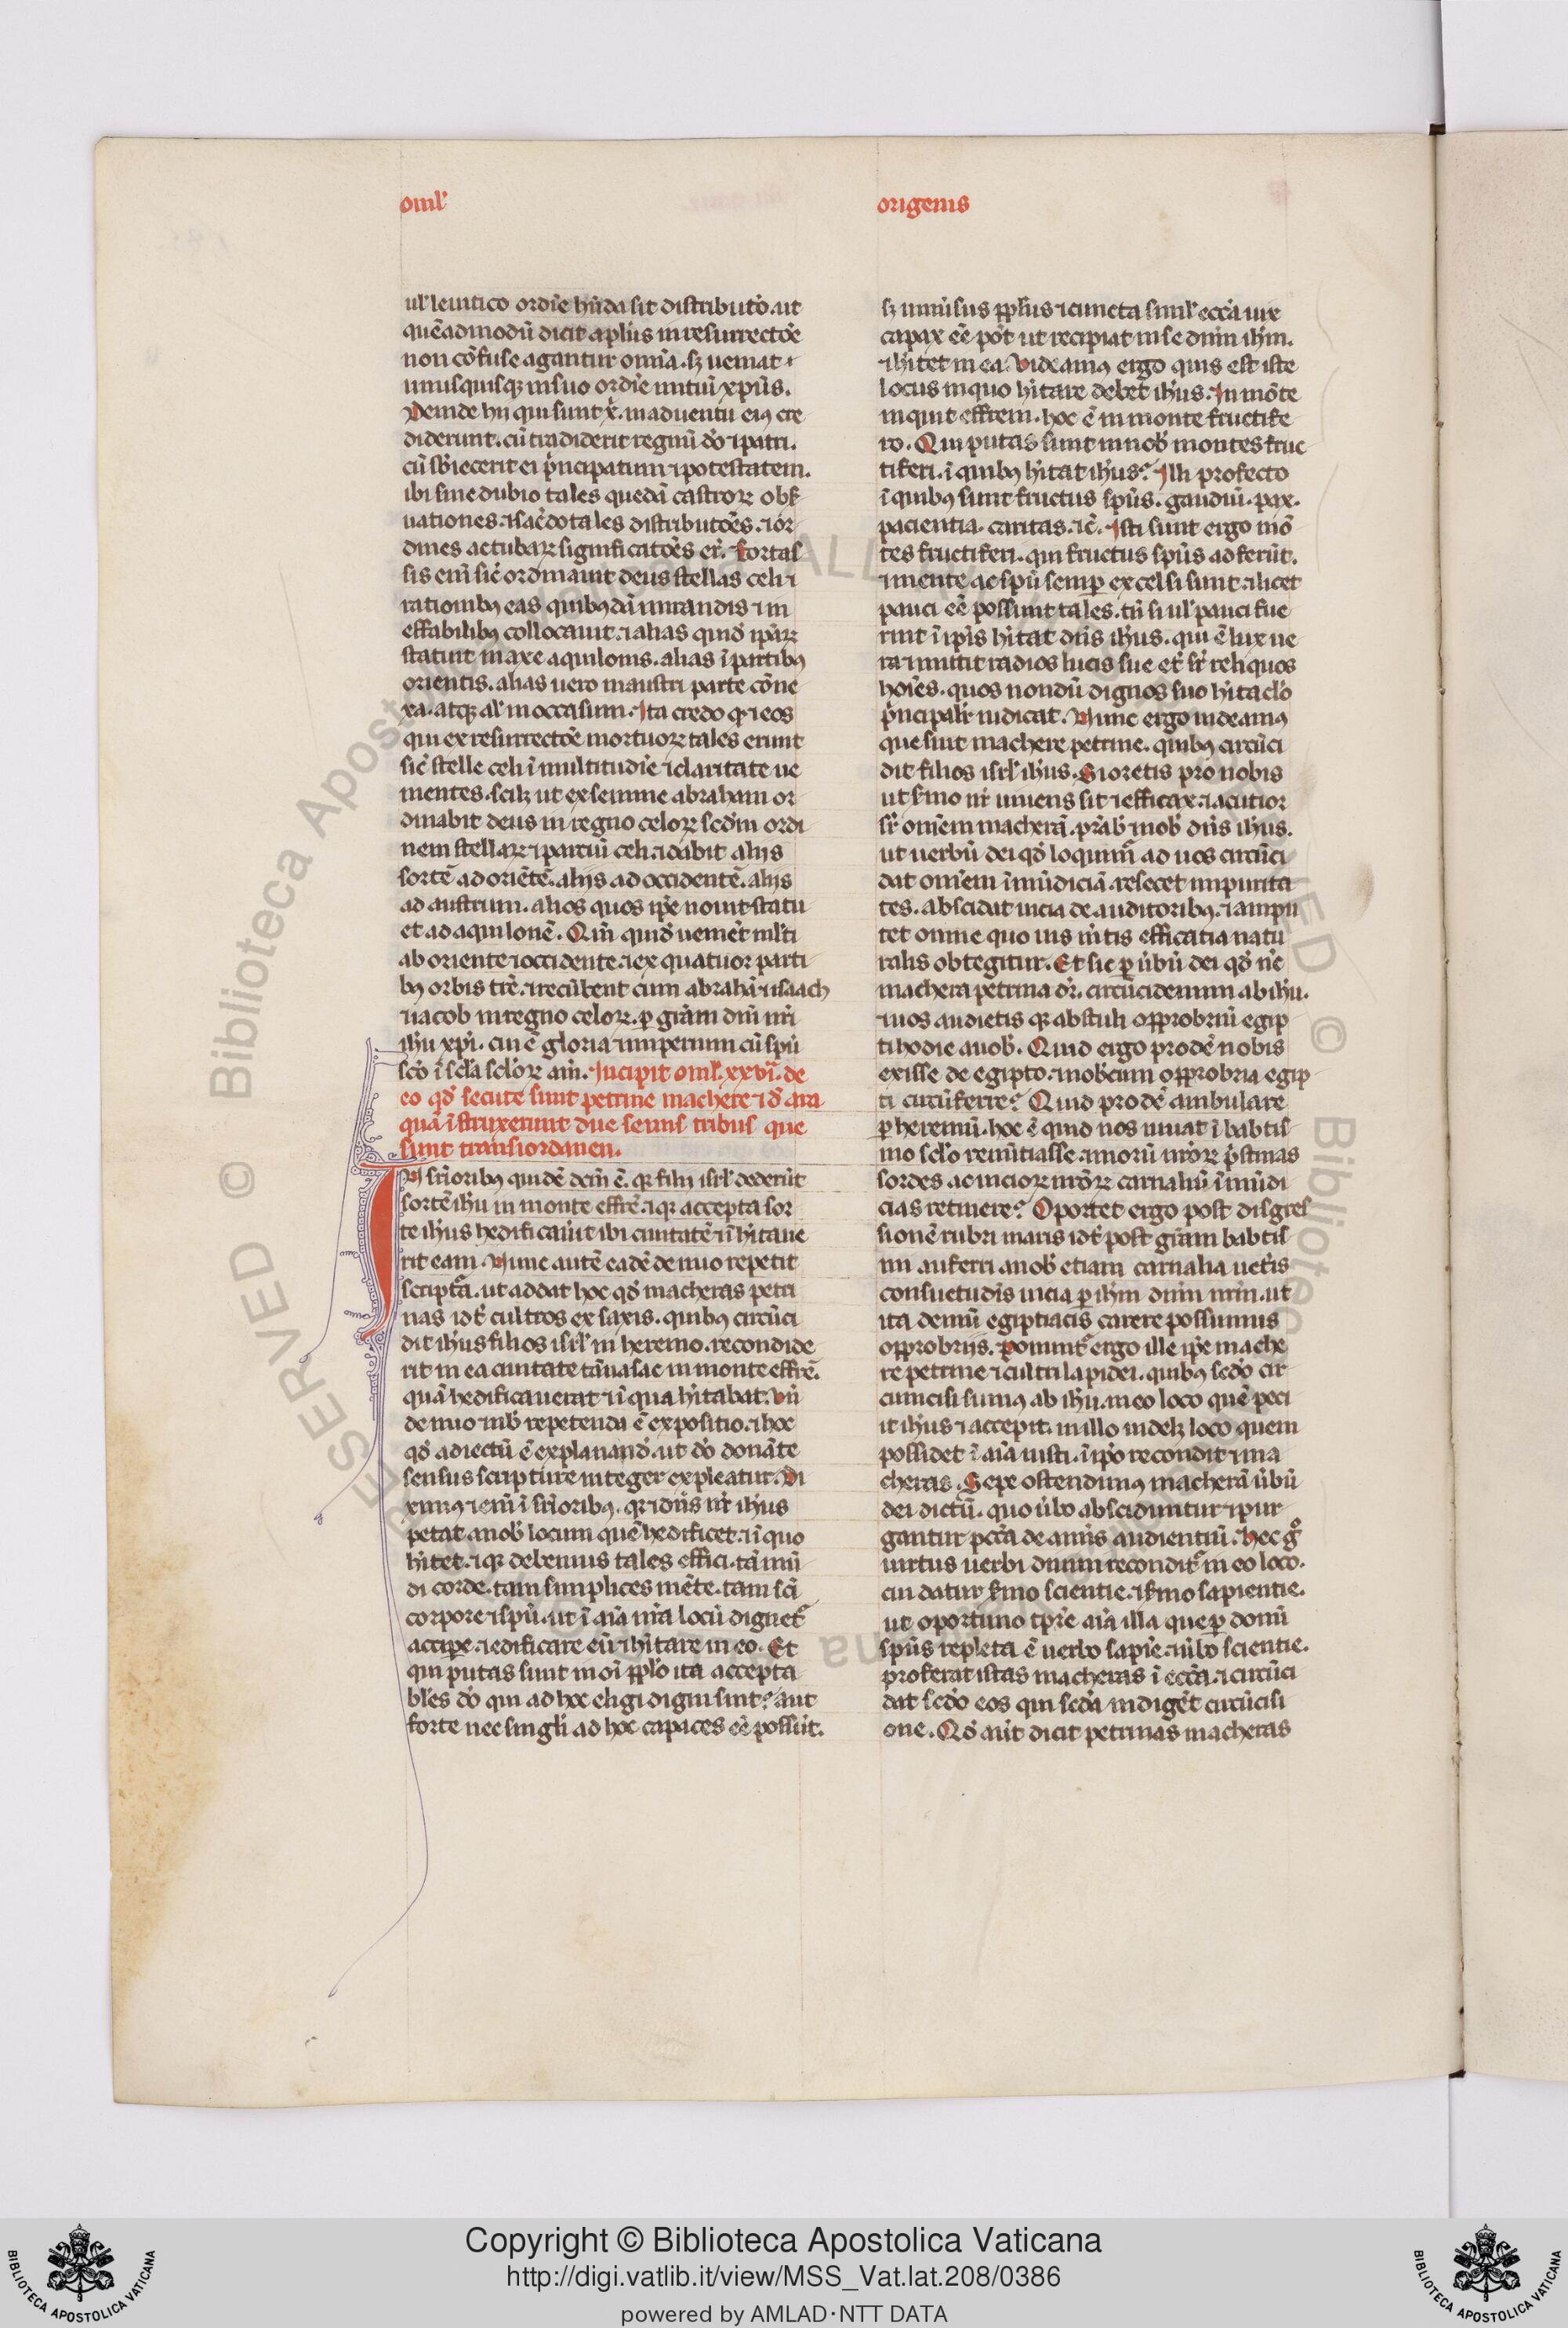 omĺ
origenis
uĺ leuitico ordīe hn̄da sit distributō. ut
quēadmodū dicit apl̄us in resurrectōe
non cōfuse agantur omīa. sꝫ ueniat ⁊
unusquisqꝫ in suo ordīe initiū xp̄us.
Deinde hii qui sunt x̄. in aduentu eiꝰ cre
diderunt. cū tradiderit regnū dō ⁊ patri.
cū sb̄iecerit ei p̄ncipatum ⁊ potestatem.
ibi sine dubio tales quedā castroꝝ obẜ
uationes. ⁊ sac̄dotales distributōes. ⁊ or
dines ac tubaꝝ significatōes er̄. Fortas
sis enī sic̄ ordinauit deus stellas celi ⁊
rationibꝫ eas quibꝰdā mirandis ⁊ in
effabilibꝰ collocauit. ⁊ alias quid̄ ip̄aꝝ
statuit in axe aquilonis. alias ī partibꝰ
orientis. alias uero in austri parte cōne
xa. atqꝫ al̄ in occasum. Ita credo ꝙ ⁊ eos
qui ex resurrectōe mortuoꝝ tales erunt
sic̄ stelle celi ī multitudīe ⁊ claritate ue
nientes. scilꝫ ut ex semine abraham or
dinabit deus in regno celoꝝ sedm̄ ordi
nem stellaꝝ ⁊ partiū celi. ⁊ dabit alijs
sortē ad oriētē. alijs ad occidentē. alijs
ad austrum. alios quos ip̄e nouit statu
et ad aquilonē. Qm̄ quid̄ uenie̅t ml̄ti
ab oriente ⁊ occidente. ⁊ ex quatuor parti
bꝰ orbis tr̄e. ⁊ recūbent cum abrahā ⁊ isaach
⁊ iacob in regno celoꝝ. ꝑ grām dn̄i nr̄i
ih̄u xp̄i. cui ē gloria ⁊ imperium cū spū
scō ī scl̄a scl̄oꝝ am̄. Incipit omĺ. xxvi. de
eo qd̄ secute sunt petrine machere ⁊ d̄ ara
quā īstruxerunt due semis tribus que
sunt trans iordanen.
In sr̄ioribꝰ quidē dc̄m ē. ꝙ filii isrl̄ dederūt
sortē ih̄u in monte effrē. ⁊ ꝙ accepta sor
te ih̄us hedificauit ibi ciuitatē ⁊ īh̄itaue
rit eam. Nunc autē eadē denuo repetit
scriptᷓa. ut addat hoc qd̄ macheras petri
nas id̄t cultros ex saxis. quibꝰ circūci
dit ih̄us filios isrl̄ in heremo. recondide
rit in ea ciuitate tānasac in monte effrē.
quā hedificauerat ⁊ ī qua h̄itabat. Vn̄
denuo nob̄ repetenda ē expositio. ⁊ hoc
qd̄ adiectū ē explanand̄. ut dō donāte
sensus scripture integer expleatur. Di
ximꝰ ⁊ enī ī sr̄ioribꝰ. ꝙ ⁊ dn̄s nr̄ ih̄us
petat a nob̄ locum quē hedificet. ⁊ ī quo
h̄itet. ⁊ ꝙ debemus tales effici. tā mū
di corde. tam simplices mēte. tam scī
corpore ⁊ spū. ut ī aīa nr̄a locū dignet᷑
accipe. ⁊ edificare eū. ⁊ h̄itare in eo. Et
qui putas sunt in oī ppl̄o ita accepta
bl̄es dō qui ad hoc eligi digni sint? aut
forte nec singl̄i ad hoc capaces eē possūt.
sꝫ uniūsus ppl̄us ⁊ cuncta simĺ eccl̄a uix
capax eē pōt ut recipiat in se dn̄m ih̄m.
⁊ h̄itet in ea. Videamꝰ ergo quis est iste
locus in quo h̄itare debet ih̄us. In mōte
inquit effrem. hoc ē in monte fructife
ro. Qui putas sunt in nob̄ montes fruc
tiferi. ī quibꝰ h̄itat ih̄us? Illi profecto
ī quibꝰ sunt fructus spūs. gaudiū. pax.
paciencia. caritas. ⁊c̄. Isti sunt ergo mō
tes fructiferi. qui fructus spūs adferūt.
⁊ mente ac spū semꝑ excelsi sunt. ⁊ licet
pauci eē possunt tales. tn̄ si uĺ pauci fue
rint ī ip̄is h̄itat dn̄s ih̄us. qui ē lux ue
ra ⁊ mittit radios lucis sue et̄ sr̄ reliquos
hoīes. quos nondū dignos suo h̄itaclo
p̄ncipalit̄ iudicat. Nunc ergo uideamꝰ
que sint machere petrine. quibꝰ circūci
dit filios isrl̄ ih̄us. Si oretis pro nobis
ut ẜmo nr̄ uiuens sit ⁊ efficax. ⁊ acutior
sr̄ omēm macherā. p̄stab̄ nob̄ dn̄s ih̄us.
ut uerbū dei qd̄ loquimᷓ ad uos circūci
dat omēm īmūdiciā. resecet impurita
tes. abscidat uicia de auditoribꝰ. ⁊ ampu
tet omne quo uis mētis efficatia natu
ralis obtegitur. Et sic ꝑ ūbū dei qd̄ n̄c
machera petrina dr̄. circūcidemini ab ih̄u.
⁊ uos audietis ꝙ abstuli opprobriū egip
ti hodie a uob̄. Quid ergo prodē nobis
exisse de egipto. ⁊ nobcum opprobria egip
ti circūferre? Quid prodē ambulare
ꝑ heremū. hoc ē quid nos iuuat ī babtis
mo scl̄o renūtiasse. ⁊ morū nr̄oꝝ p̄stinas
sordes ac uicioꝝ nr̄oꝝ carnaliū īmūdi
cias retinere? Oportet ergo post disgres
sionē rubri maris id̄t post grām babtis
mi auferri a nob̄ etiam carnalia uet̄is
consuetudīs uicia ꝑ ih̄m dn̄m nr̄m. ut
ita demū egiptiacis carere possumus
opprobrijs. Ponunt᷑ ergo ille ip̄e mache
re petrine ⁊ cultri lapidei. quibꝰ sc̄do cir
cumcisi sumꝰ ab ih̄u. in eo loco quē peci
it ih̄us ⁊ accepit. in illo uidelꝫ loco quem
possidet ī aīa iusti. ī ip̄o recondit ⁊ ma
cheras. Sepe ostendimꝰ macherā ūbū
dei dictū. quo ūbo absciduntur ⁊ pur
gantur pcc̄a de aīmis audientiū. Hec gͦ
uirtus uerbi diuini recondit᷑ in eo loco.
cui datur ẜmo scientie. ⁊ ẜmo sapientie.
ut oportuno tpr̄e aīa illa que ꝑ donū
spūs repleta ē uerbo sapīe. ⁊ ūbo scientie.
proferat istas macheras ī eccl̄a. ⁊ circūci
dat sc̄do eos qui sc̄da indigēt circūcisi
one. Qd̄ aūt dicit petrinas macheras
Copyright © Biblioteca Apostolica Vaticana
http://digi.vatlib.it/view/MSS_Vat.lat.208/0386
powered by AMLAD·NTT DATA
BIBLIOTECA APOSTOLICA VATICANA
BIBLIOTECA APOSTOLICA VATICANA